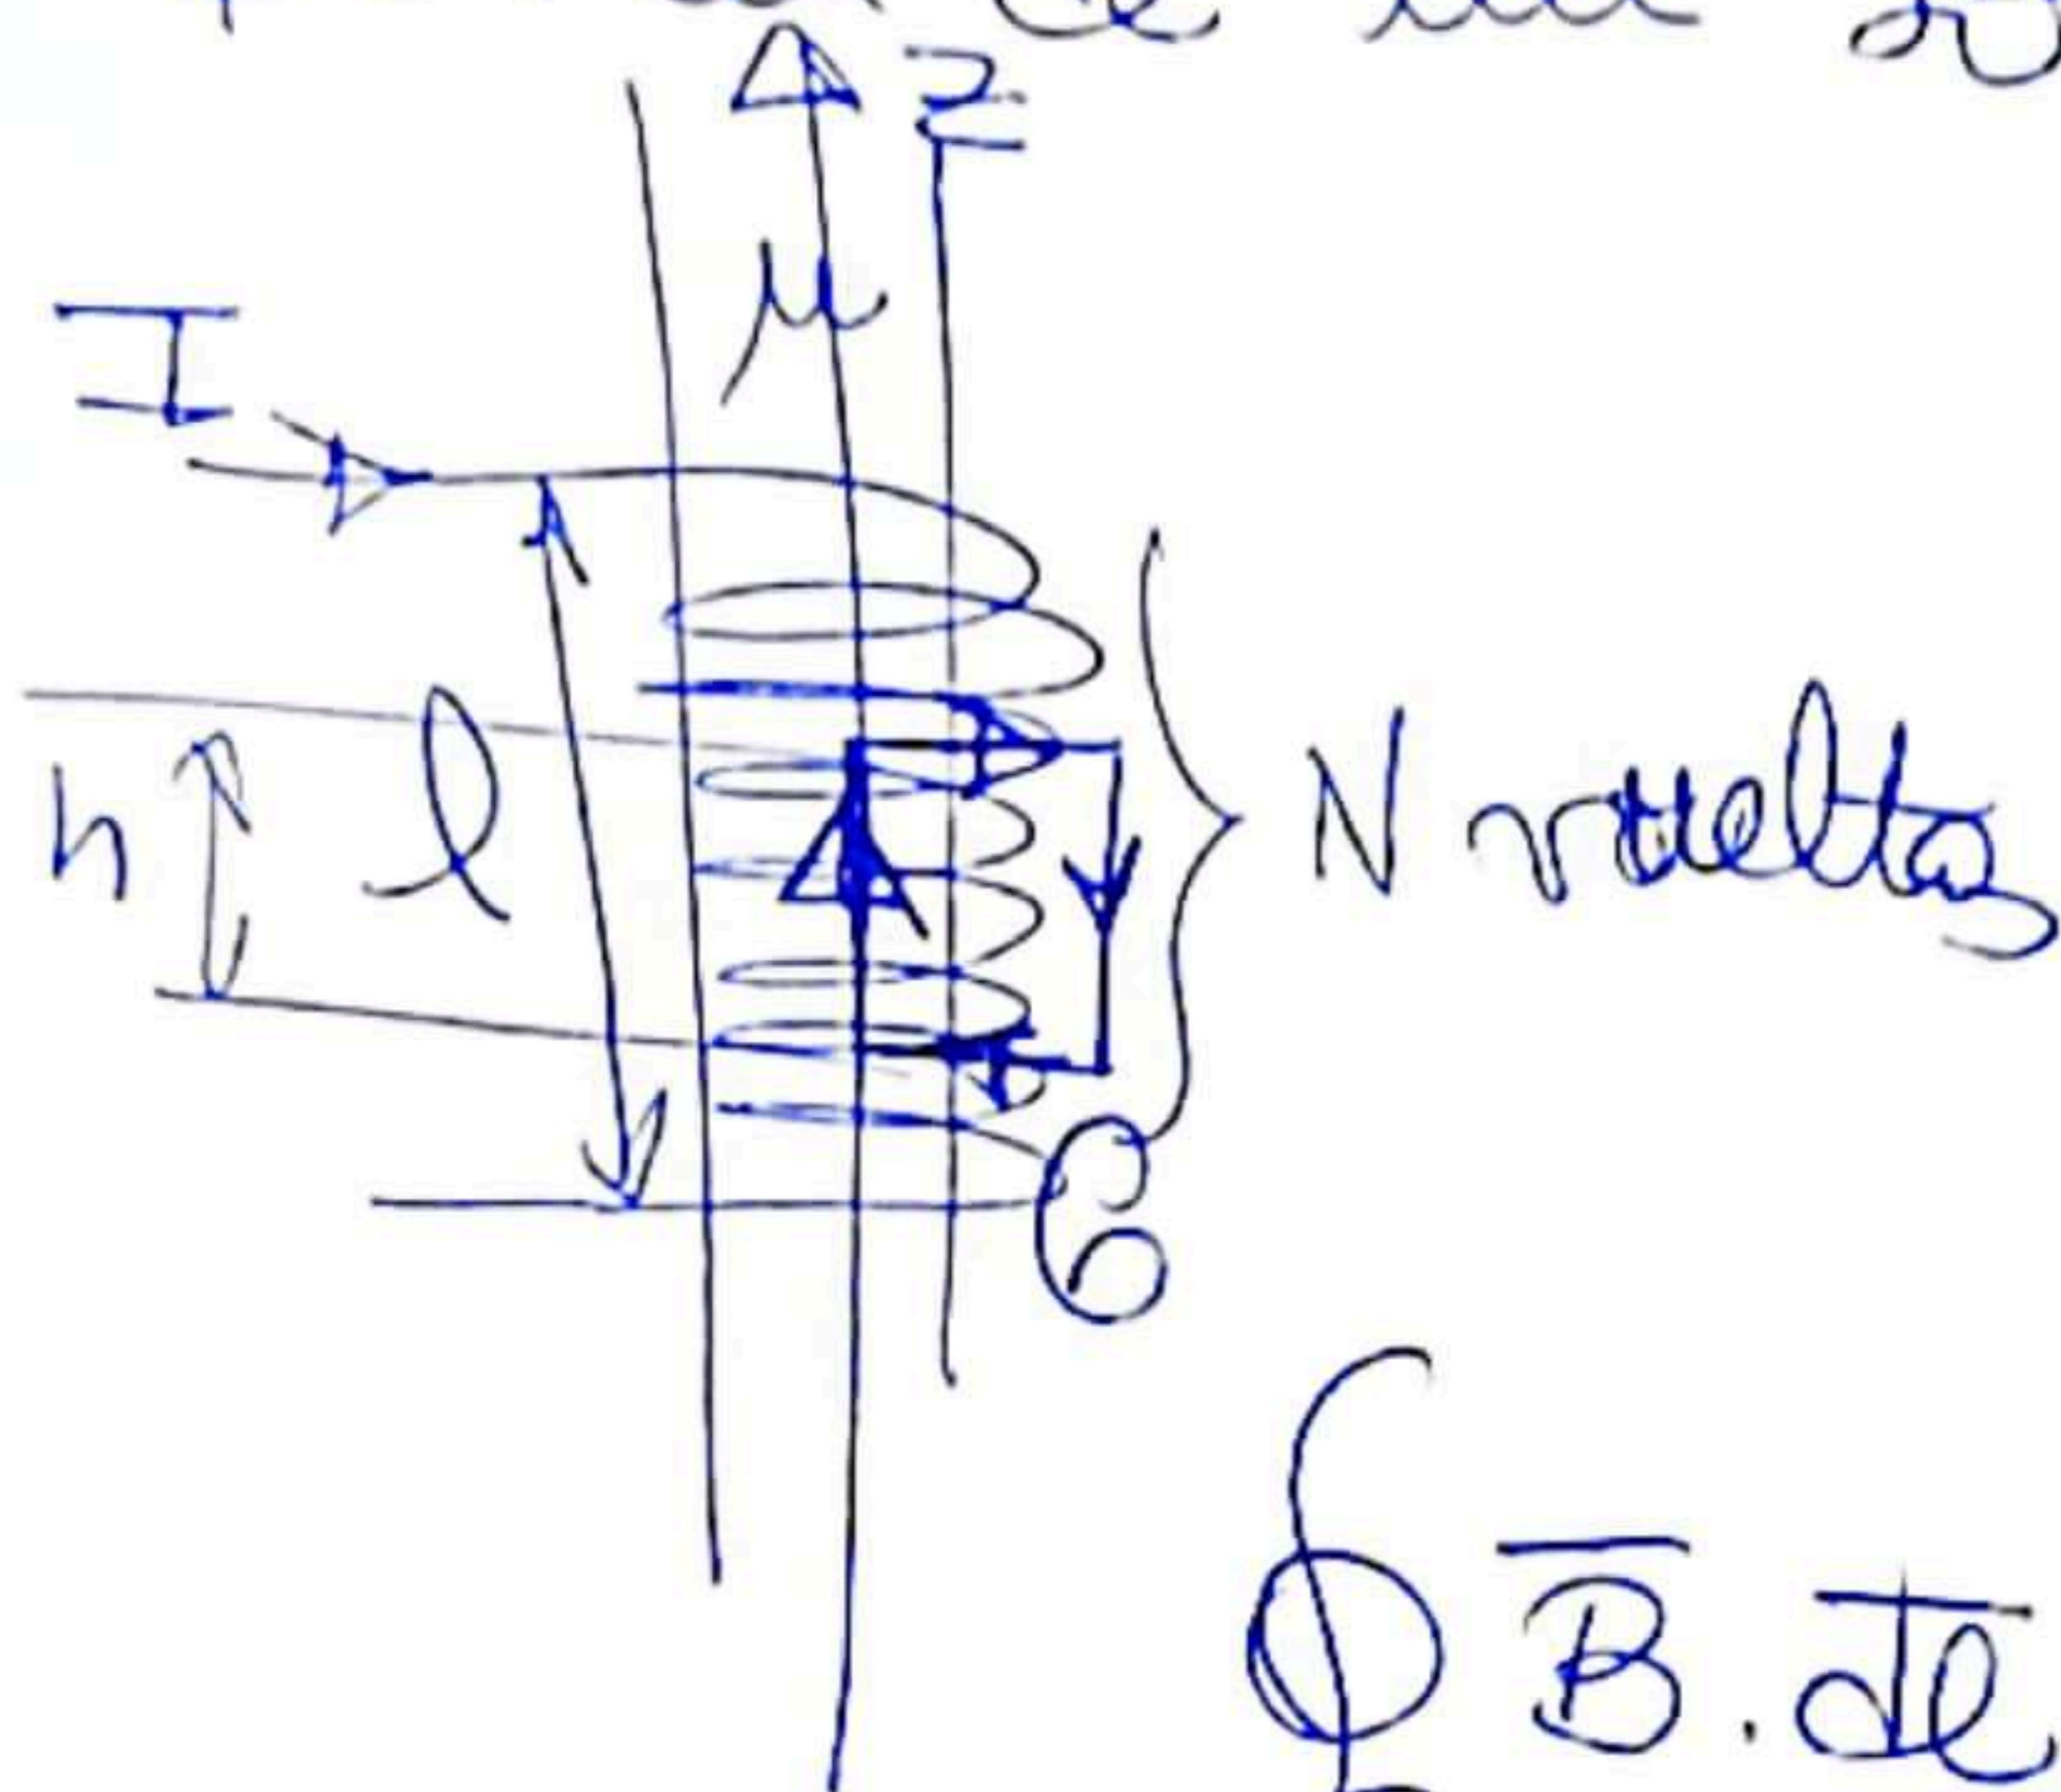 z
μ
I
h
l
N vueltas
6
∮ B̅ . d̅l̅